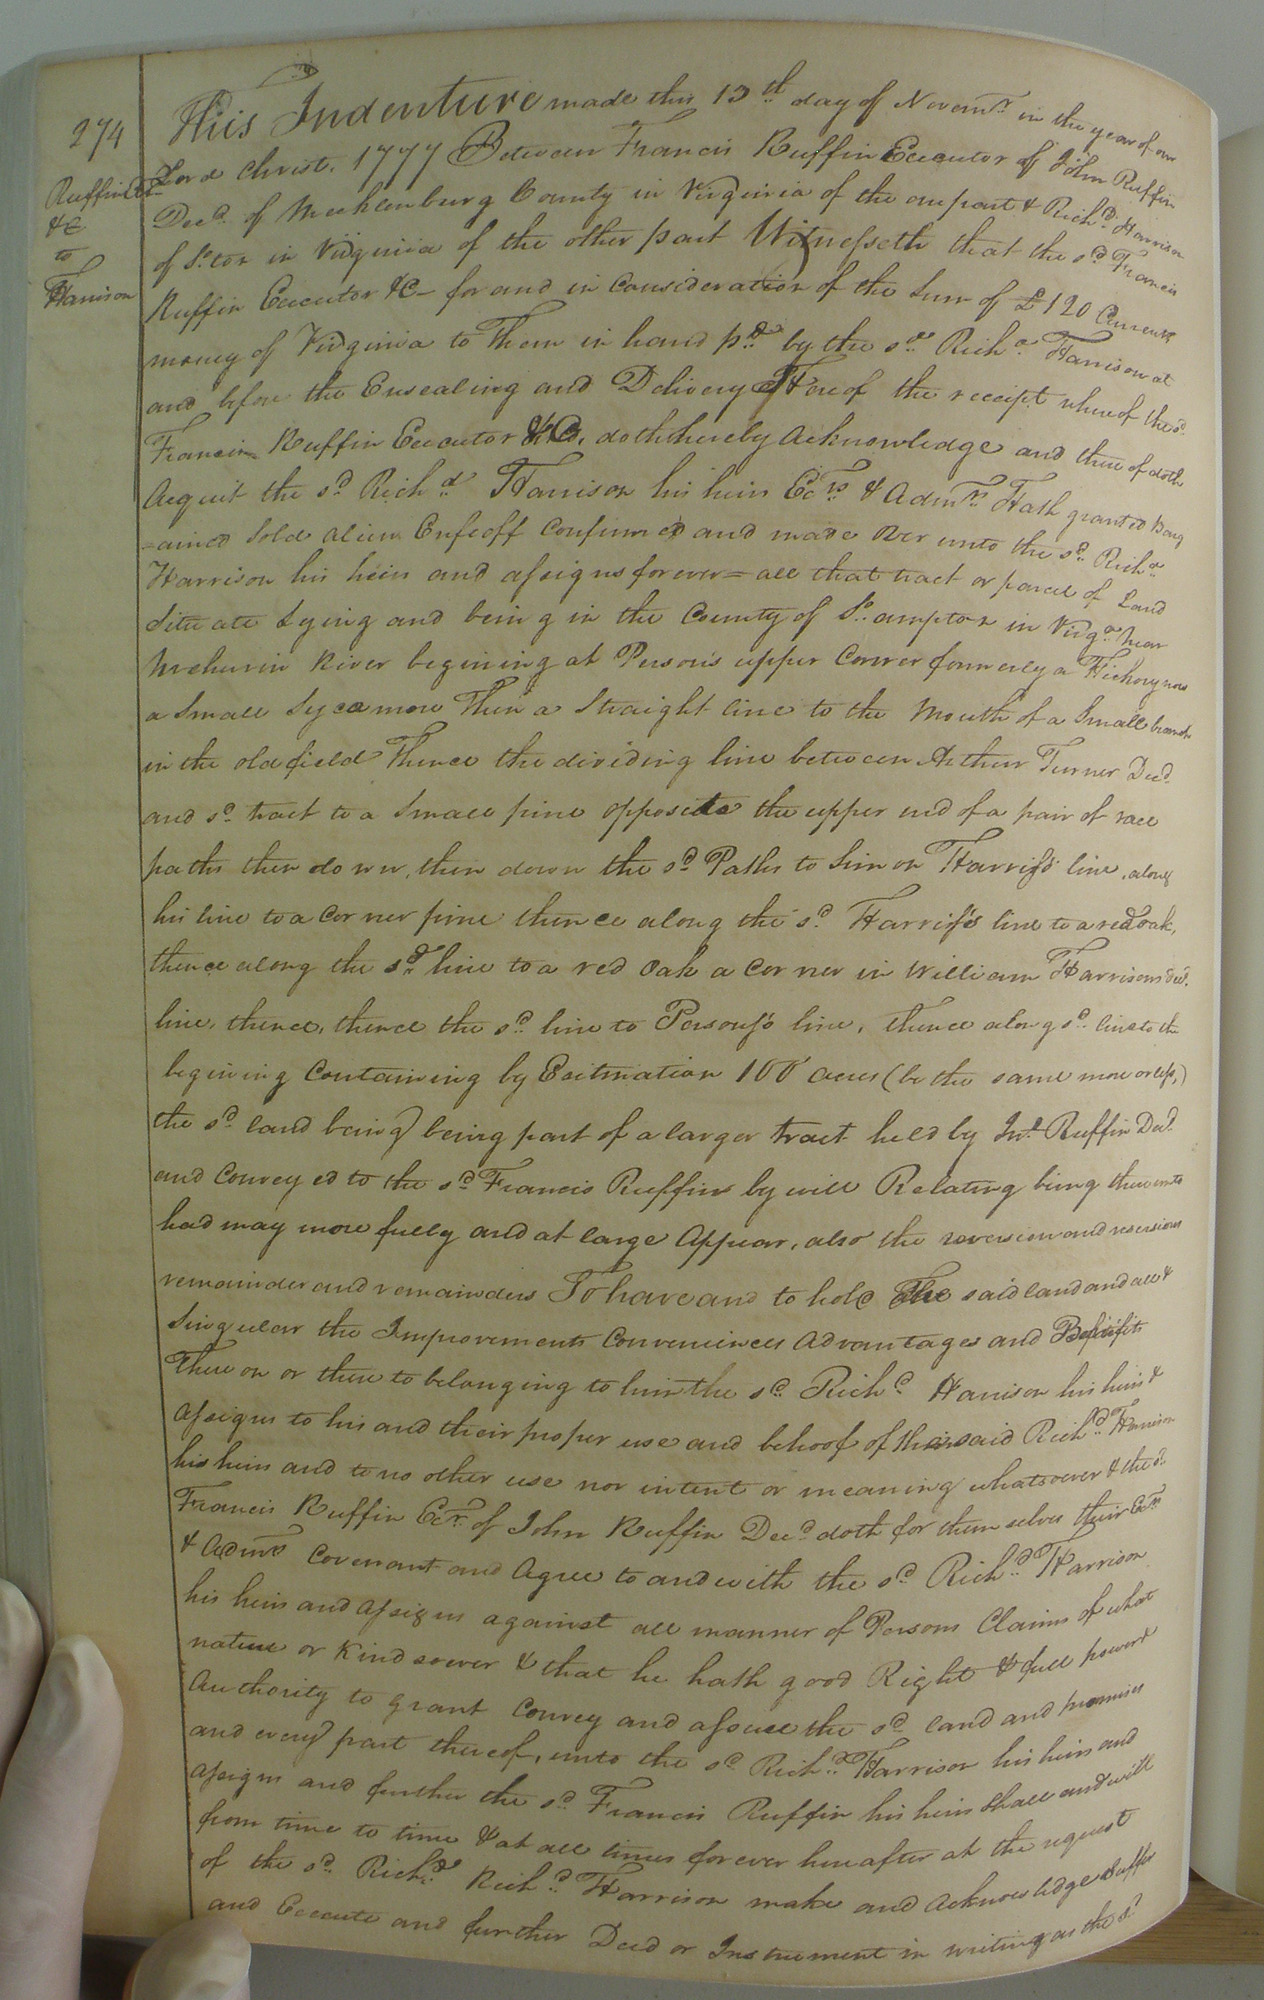 274
Ruffin Exr
&C
to
Harrison
This Indenture made this 13th day of Novemr in the year of our
Lord Christ. 1777 Between Francis Ruffin Executor of John Ruffin
Decd of Mecklenburg County in Virginia of the one part & Richd Harrison
of S:ton in Virginia of the other part Witnesseth that the sd Francis
Ruffin Executor &C- for and in Consideration of the Sum of £120 Current
money of Virginia to Them in hand pd by the sd Richd Harrison at
and before the Ensealing and Delivery Hereof the receipt whereof the sd
Francis Ruffin Executor &C. doth hereby Acknowledge and thereof doth
Acquit the sd Richd Harrison his heirs Ecrs & Admrs Hath granted Barg
=ained Sold alien Enfeoff Confirmed and made Over unto the sd Richd
Harrison his heirs and assigns forever = all that tract or parcel of Land
Situate Lying and being in the County of So.ampton in Virga near
Meherrin River begining at Person's upper Corner formerly a Hickory now
a Small Sycamore Then a Straight line to the Mouth of a Small branch
in the old field Thence the dividing line between Arthur Turner Decd
and sd tract to a Small pine opposite the upper end of a pair of race
paths then down, then down the sd Paths to Simon Harriss's line, along
his line to a Corner pine thence along the sd Harriss's line to a red oak,
thence along the sd line to a red Oak a Corner in William Harrisons Decd
line, thence, thence the sd line to Persons's line, Thence along sd line to the
begining Containing by Esitmation 100 acres (be the same more or less,)
the sd land being being part of a larger tract held by Jno Ruffin Decd
and Conveyed to the sd Francis Ruffin by will Relating being thereunto
had may more fully and at large Appear, also the reversion and reversions
remainder and remainders To have and to hold The said land and all &
Singular the Improvements Conveniences Advantages and Benefits
Thereon or thereto belonging to him the sd Richd Harrison his heirs &
assigns to his and their proper use and behoof of the said Richd Harrison
his heirs and to no other use nor intent or meaning whatsoever & the sd
Francis Ruffin Ecr of John Ruffin Decd doth for themselves their Ecrs
& Admrs Covenant and Agree to and with the sd Richd Harrison
his heirs and assigns against all manner of Persons Claims of what
nature or Kind soever & that he hath good Right & full power &
Authority to grant Convey and assure the sd land and premises
and every part thereof, unto the sd Richd Harrison his heirs and
assigns and further the sd Francis Ruffin his heirs shall and will
from time to time & at all times forever hereafter at the request
of the sd Richd Richd Harrison make and Acknowledge Suffer
and Execute and further Deed or Instrument in writing as the sd